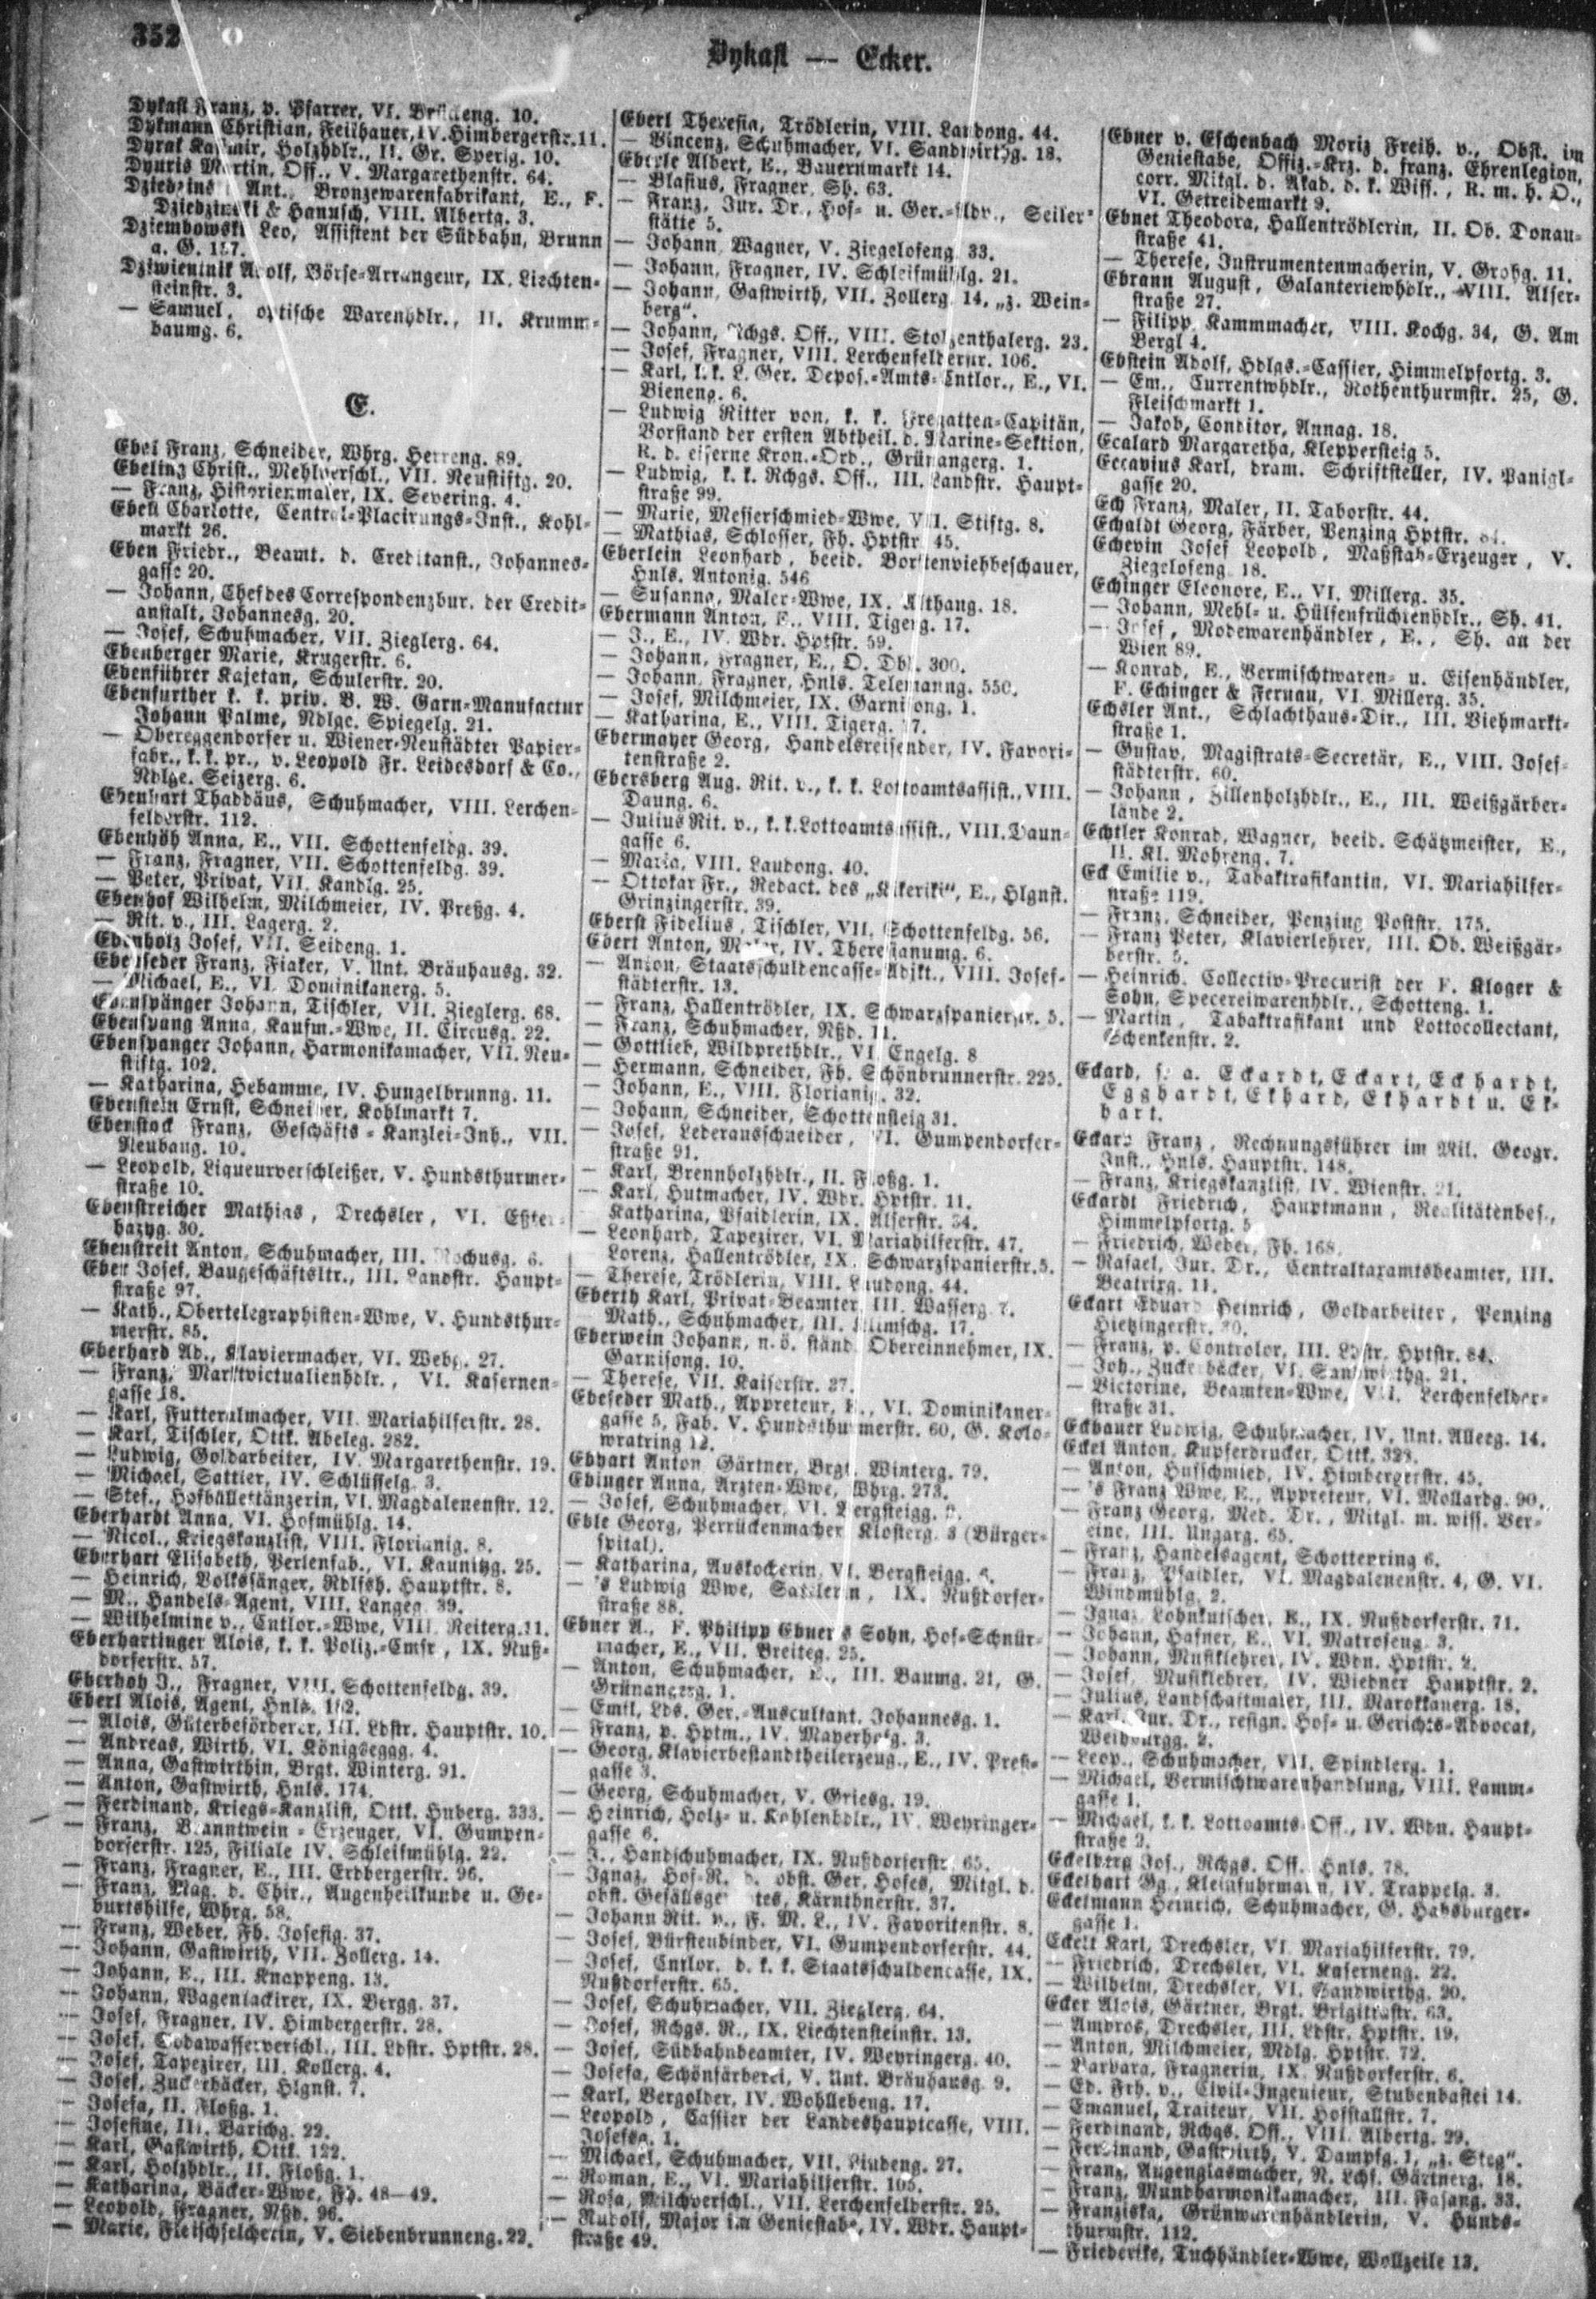 352
Dykast — Ecker.
Dykast Franz, p. Pfarrer, VI. 10.
Dykmann Christian, Feilhauer, IV. Himbergerstr. 11.
Dyrak Holzhdlr., II. Gr. Sperlg. 10.
Dyuris Martin, Off., V. Margarethenstr. 64.
Ant., Bronzewarenfabrikant, E., F.
& Hanusch, VIII. Albertg. 3.
Dziembowski Leo, Assistent der Südbahn, Brunn
a. G. 157.
Dziwientnik Adolf, Börse-Arrangeur, IX. Liechten-
steinstr. 3.
— Samuel, optische Warenhdlr., II. Krumm-
baumg. 6.
E.
Ebel Franz, Schneider, Whrg. Herreng. 89.
Ebeling Christ., Mehlverschl., VII. Neustiftg. 20.
— Franz, Historienmaler, IX. Severing. 4.
Ebell Charlotte, Central-Placirungs-Inst., Kohl-
markt 26.
Eben Friedr., Beamt. d. Creditanst., Johannes-
gasse 20.
— Johann, Chef des Correspondenzbur. der Credit-
anstalt, Johannesg. 20.
— Josef, Schuhmacher, VII. Zieglerg. 64.
Ebenberger Marie, Krugerstr. 6.
Ebenführer Kajetan, Schulerstr. 20.
Ebenfurther k. k. priv. B. W. Garn-Manufactur
Johann Palme, Ndlge. Spiegelg. 21.
— Obereggendorfer u. Wiener-Neustädter Papier-
fabr., k. k. pr., v. Leopold Fr. Leidesdorf & Co.,
Ndlge. Seizerg. 6.
Ebenhart Thaddäus, Schuhmacher, VIII. Lerchen-
felderstr. 112.
Ebenhöh Anna, E., VII. Schottenfeldg. 39.
— Franz, Fragner, VII. Schottenfeldg. 39.
— Peter, Privat, VII. Kandlg. 25.
Ebenhof Wilhelm, Milchmeier, IV. Preßg. 4.
— Rit. v., III. Lagerg. 2.
Ebenholz Josef, VII. Seideng. 1.
Ebenseder Franz, Fiaker, V. Unt. Bräuhausg. 32.
— Michael, E., VI. Dominikanerg. 5.
Ebenspänger Johann, Tischler, VII. Zieglerg. 68.
Ebenspang Anna, Kaufm.-Wwe, II. Circusg. 22.
Ebenspanger Johann, Harmonikamacher, VII. Neu-
stiftg. 102.
— Katharina, Hebamme, IV. Hungelbrunng. 11.
Ebenstein Ernst, Schneider, Kohlmarkt 7.
Ebenstock Franz, Geschäfts-Kanzlei-Inh., VII.
Neubaug. 10.
— Leopold, Liqueurverschleißer, V. Hundsthurmer-
straße 10.
Ebenstreicher Mathias, Drechsler, VI. Eßter-
hazyg. 30.
Ebenstreit Anton, Schuhmacher, III. Rochusg. 6.
Eber Josef, Baugeschäftsltr., III. Landstr. Haupt-
straße 97.
— Kath., Obertelegraphisten-Wwe, V. Hundsthur-
merstr. 85.
Eberhard Ad., Klaviermacher, VI. Webg. 27.
— Franz, Marktvictualienhdlr., VI. Kasernen-
gasse 18.
— Karl, Futteralmacher, VII. Mariahilferstr. 28.
— Karl, Tischler, Ottk. Abeleg. 282.
— Ludwig, Goldarbeiter, IV. Margarethenstr. 19.
— Michael, Sattler, IV. Schlüsselg. 3.
— Stef., Hofballettänzerin, VI. Magdalenenstr. 12.
Eberhardt Anna, VI. Hofmühlg. 14.
— Nicol., Kriegskanzlist, VIII. Florianig. 8.
Eberhart Elisabeth, Perlenfab., VI. Kaunitzg. 25.
— Heinrich, Volkssänger, Rdlfsh. Hauptstr. 8.
— M., Handels-Agent, VIII. Langeg. 39.
— Wilhelmine v., Cntlor.-Wwe, VIII. Reiterg. 11.
Eberhartinger Alois, k. k. Poliz.-Cmsr, IX. Nuß-
dorferstr. 57.
Eberhoh J., Fragner, VIII. Schottenfeldg. 39.
Eberl Alois, Agent, Hnls. 152.
— Alois, Güterbeförderer, III. Ldstr. Hauptstr. 10.
— Andreas, Wirth, VI. Königseggg. 4.
— Anna, Gastwirthin, Brgt. Winterg. 91.
— Anton, Gastwirth, Hnls. 174.
— Ferdinand, Kriegs-Kanzlist, Ottk. Huberg. 333.
— Franz, Branntwein-Erzeuger, VI. Gumpen-
dorferstr. 125, Filiale IV. Schleifmühlg. 22.
— Franz, Fragner, E., III. Erdbergerstr. 96.
— Franz, Mag. d. Chir., Augenheilkunde u. Ge-
burtshilfe, Whrg. 58.
— Franz, Weber, Fh. Josefig. 37.
— Johann, Gastwirth, VII. Zollerg. 14.
— Johann, E., III. Knappeng. 13.
— Johann, Wagenlackirer, IX. Bergg. 37.
— Josef, Fragner, IV. Himbergerstr. 28.
— Josef, Sodawasserverschl., III. Ldstr. Hptstr. 28.
— Josef, Tapezirer, III. Kollerg. 4.
— Josef, Zuckerbäcker, Hlgnst. 7.
— Josefa, II. Floßg. 1.
— Josefine, III. Barichg. 22.
— Karl, Gastwirth, Ottk. 122.
— Karl, Holzhdlr., II. Floßg. 1.
— Katharina, Bäcker-Wwe, Fh. 48—49.
— Leopold, Fragner, Nßd. 96.
— Marie, Fleischselcherin, V. Siebenbrunneng. 22.
Eberl Theresia, Trödlerin, VIII. Laudong. 44.
— Vincenz, Schuhmacher, VI. Sandwirthg. 18.
Eberle Albert, E., Bauernmarkt 14.
— Blasius, Fragner, Sh. 63.
— Franz, Jur. Dr., Hof- u. Ger.-Adv., Seiler-
stätte 5.
— Johann, Wagner, V. Ziegelofeng. 33.
— Johann, Fragner, IV. Schleifmühlg. 21.
— Johann, Gastwirth, VII. Zollerg. 14, „z. Wein-
berg“.
— Johann, Rchgs. Off., VIII. Stolzenthalerg. 23.
— Josef, Fragner, VIII. Lerchenfelderstr. 106.
— Karl, k. k. L. Ger. Depos.-Amts-Cntlor., E., VI.
Bieneng. 6.
— Ludwig Ritter von, k. k. Fregatten-Capitän,
Vorstand der ersten Abtheil. d. Marine-Sektion,
R. d. eiserne Kron.-Ord., Grünangerg. 1.
— Ludwig, k. k. Rchgs. Off., III. Landstr. Haupt-
straße 99.
— Marie, Messerschmied-Wwe, VII. Stiftg. 8.
— Mathias, Schlosser, Fh. Hptstr. 45.
Eberlein Leonhard, beeid. Borstenviehbeschauer,
Hnls. Antonig. 546
— Susanna, Maler-Wwe, IX. Althang. 18.
Ebermann Anton, E., VIII. Tigerg. 17.
— J., E., IV. Wdr. Hptstr. 59.
— Johann, Fragner, E., O. Dbl. 300.
— Johann, Fragner, Hnls. Telemanng. 550.
— Josef, Milchmeier, IX. Garnisong. 1.
— Katharina, E., VIII. Tigerg. 17.
Ebermayer Georg, Handelsreisender, IV. Favori-
tenstraße 2.
Ebersberg Aug. Rit. v., k. k. Lottoamtsassist., VIII.
Daung. 6.
— Julius Rit. v., k. k. Lottoamtsassist., VIII. Daun-
gasse 6.
— Maria, VIII. Laudong. 40.
— Ottokar Fr., Redact. des „Kikeriki“, E., Hlgnst.
Grinzingerstr. 39.
Eberst Fidelius, Tischler, VII. Schottenfeldg. 56.
Ebert Anton, IV. Theresianumg. 6.
— Anton, Staatsschuldencasse-Adjkt., VIII. Josef-
städterstr. 13.
— Franz, Hallentrödler, IX. Schwarzspanierstr. 5.
— Franz, Schuhmacher, Nßd. 11.
— Gottlieb, Wildprethdlr., VI. Engelg. 8
— Hermann, Schneider, Fh. Schönbrunnerstr. 225.
— Johann, E., VIII. Florianig. 32.
— Johann, Schneider, Schottensteig 31.
— Josef, Lederausschneider, VI. Gumpendorfer-
straße 91.
— Karl, Brennholzhdlr., II. Floßg. 1.
— Karl, Hutmacher, IV. Wdr. Hptstr. 11.
Katharina, Pfaidlerin, IX. Alserstr. 34.
— Leonhard, Tapezirer, VI. Mariahilferstr. 47.
Lorenz, Hallentrödler, IX. Schwarzspanierstr. 5.
— Therese, Trödlerin, VIII. Laudong. 44.
Eberth Karl, Privat-Beamter, III. Wasserg. 7.
Math., Schuhmacher, III. Klimschg. 17.
Eberwein Johann, n. ö. ständ. Obereinnehmer, IX.
Garnisong. 10.
— Therese, VII. Kaiserstr. 27.
Ebeseder Math., Appreteur, E., VI. Dominikaner-
gasse 5, Fab. V. Hundsthurmerstr. 60, G. Kolo-
wratring 12.
Ebhart Anton Gärtner, Brgt. Winterg. 79.
Ebinger Anna, Arzten-Wwe, Whrg. 273.
— Josef, Schuhmacher, VI. Bergsteigg.
Eble Georg, Perrückenmacher, Klosterg. 3 (Bürger-
spital).
— Katharina, Auskocherin, VI. Bergsteigg.
— 's Ludwig Wwe, Sattlerin, IX. Nußdorfer-
straße 88.
Ebner A., F. Philipp Ebner's Sohn, Hof-Schnür-
macher, E., VII. Breiteg. 25.
— Anton, Schuhmacher, E., III. Baumg. 21, G.
Grünangerg. 1.
— Emil, Lds. Ger.-Auscultant, Johannesg. 1.
— Franz, p. Hptm., IV. Mayerhofg. 3.
— Georg, Klavierbestandtheilerzeug., E., IV. Preß-
gasse 3.
— Georg, Schuhmacher, V. Griesg. 19.
— Heinrich, Holz- u. Kohlenhdlr., IV. Weyringer-
gasse 6.
— J., Handschuhmacher, IX. Nußdorferstr. 65.
— Ignaz, Hof-R. d. obst. Ger. Hofes, Mitgl. d.
obst. Kärnthnerstr. 37.
— Johann Rit. v., F. M. L., IV. Favoritenstr. 8.
— Josef, Bürstenbinder, VI. Gumpendorferstr. 44.
— Josef, Cntlor. d. k. k. Staatsschuldencasse, IX.
Nußdorferstr. 65.
— Josef, Schuhmacher, VII. Zieglerg. 64.
— Josef, Rchgs. R., IX. Liechtensteinstr. 13.
— Josef, Südbahnbeamter, IV. Weyringerg. 40.
— Josefa, Schönfärberei, V. Unt. Bräuhausg. 9.
— Karl, Vergolder, IV. Wohllebeng. 17.
— Leopold, Cassier der Landeshauptcasse, VIII.
Josefsg. 1.
— Michael, Schuhmacher, VII. Lindeng. 27.
— Roman, E., VI. Mariahilferstr. 105.
— Rosa, Milchverschl., VII. Lerchenfelderstr. 25.
— Rudolf, Major im Geniestabe, IV. Wdr. Haupt-
straße 49.
Ebner v. Eschenbach Moriz Freih. v., Obst. im
Geniestabe, Offiz.-Krz. d. franz. Ehrenlegion,
corr. Mitgl. d. Akad. d. k. Wiss., R. m. h. O.,
VI. Getreidemarkt 9.
Ebnet Theodora, Hallentrödlerin, II. Ob. Donau-
straße 41.
— Therese, Instrumentenmacherin, V. Grohg. 11.
Ebrann August, Galanteriewhdlr., VIII. Alser-
straße 27.
— Filipp, Kammmacher, VIII. Kochg. 34, G. Am
Bergl 4.
Ebstein Adolf, Hdlgs.-Cassier, Himmelpfortg. 3.
— Em., Currentwhdlr., Rothenthurmstr. 25, G.
Fleischmarkt 1.
— Jakob, Conditor, Annag. 18.
Ecalard Margaretha, Kleppersteig 5.
Eccavius Karl, dram. Schriftsteller, IV. Panigl-
gasse 20.
Ech Franz, Maler, II. Taborstr. 44.
Echaldt Georg, Färber, Penzing Hptstr.
Echevin Josef Leopold, Maßstab-Erzeuger, V.
Ziegelofeng. 18.
Echinger Eleonore, E., VI. Millerg. 35.
— Johann, Mehl- u. Hülsenfrüchtenhdlr., Sh. 41.
— Josef, Modewarenhändler, E., Sh. an der
Wien 89.
— Konrad, E., Vermischtwaren- u. Eisenhändler,
F. Echinger & Fernau, VI. Millerg. 35.
Echsler Ant., Schlachthaus-Dir., III. Viehmarkt-
straße 1.
— Gustav, Magistrats-Secretär, E., VIII. Josef-
städterstr. 60.
— Johann, Zillenholzhdlr., E., III. Weißgärber-
lände 2.
Echtler Konrad, Wagner, beeid. Schätzmeister, E.,
II. Kl. Mohreng. 7.
Eck Emilie v., Tabaktrafikantin, VI. Mariahilfer-
straße 119.
— Franz, Schneider, Penzing Poststr. 175.
— Franz Peter, Klavierlehrer, III. Ob. Weißgär-
berstr. 5.
— Heinrich, Collectiv-Procurist der F. Kloger &
Sohn, Specereiwarenhdlr., Schotteng. 1.
— Martin, Tabaktrafikant und Lottocollectant,
Schenkenstr. 2.
Eckard, s. a. Eckardt, Eckart, Eckhardt,
Egghardt, Ekhard, Ekhardt u. Ek-
hart.
Eckard Franz, Rechnungsführer im Mil. Geogr.
Inst., Hnls. Hauptstr. 148.
— Franz, Kriegskanzlist, IV. Wienstr. 21.
Eckardt Friedrich, Hauptmann, Realitätenbes.,
Himmelpfortg. 5
— Friedrich, Weber, Fh. 168.
— Rafael, Jur. Dr., Centraltaxamtsbeamter, III.
Beatrixg. 11.
Eckart Eduard Heinrich, Goldarbeiter, Penzing
Hietzingerstr.
— Franz, p. Controlor, III. Ldstr. Hptstr. 84.
— Joh., Zuckerbäcker, VI. Sandwirthg. 21.
— Victorine, Beamten-Wwe, VIII. Lerchenfelder-
straße 31.
Eckbauer Ludwig, Schuhmacher, IV. Unt. Alleeg. 14.
Eckel Anton, Kupferdrucker, Ottk. 328.
— Anton, Hufschmied, IV. Himbergerstr. 45.
— 's Franz Wwe, E., Appreteur, VI. Mollardg. 90.
— Franz Georg, Med. Dr., Mitgl. m. wiss. Ver-
eine, III. Ungarg. 65.
— Franz, Handelsagent, Schottenring 6.
— Franz, Pfaidler, VI. Magdalenenstr. 4, G. VI.
Windmühlg. 2.
— Ignaz, Lohnkutscher, E., IX. Nußdorferstr. 71.
— Johann, Hafner, E., VI. Matroseng. 3.
— Johann, Musiklehrer, IV. Wdn. Hptstr. 2.
— Josef, Musiklehrer, IV. Wiedner Hauptstr. 2.
— Julius, Landschaftmaler, III. Marokkanerg. 18.
— Karl, Jur. Dr., resign. Hof- u. Gerichts-Advocat,
Weihburgg. 2.
— Leop., Schuhmacher, VII. Spindlerg. 1.
— Michael, Vermischtwarenhandlung, VIII. Lamm-
gasse 1.
— Michael, k. k. Lottoamts-Off., IV. Wdn. Haupt-
straße 2.
Eckelberg Jos., Rchgs. Off., Hnls. 78.
Eckelhart Gg., Kleinfuhrmann, IV. Trappelg. 3.
Eckelmann Heinrich, Schuhmacher, G. Habsburger-
gasse 1.
Eckelt Karl, Drechsler, VI. Mariahilferstr. 79.
— Friedrich, Drechsler, VI. Kaserneng. 22.
— Wilhelm, Drechsler, VI. Sandwirthg. 20.
Ecker Alois, Gärtner, Brgt. Brigittastr. 63.
— Ambros, Drechsler, III. Ldstr. Hptstr. 19.
— Anton, Milchmeier, Mdlg. Hptstr. 72.
— Barbara, Fragnerin, IX. Nußdorferstr. 6.
— Ed. Frh. v., Civil-Ingenieur, Stubenbastei 14.
— Emanuel, Traiteur, VII. Hofstallstr. 7.
— Ferdinand, Rchgs. Off., VIII. Albertg. 29.
— Ferdinand, Gastwirth, V. Dampfg. 1, „z. Steg“.
— Franz, Augenglasmacher, N. Lchf. Gärtnerg. 18.
— Franz, Mundharmonikamacher, III. Fasang. 33.
— Franziska, Grünwarenhändlerin, V. Hunds-
thurmstr. 112.
— Friederike, Tuchhändler-Wwe, Wollzeile 13.